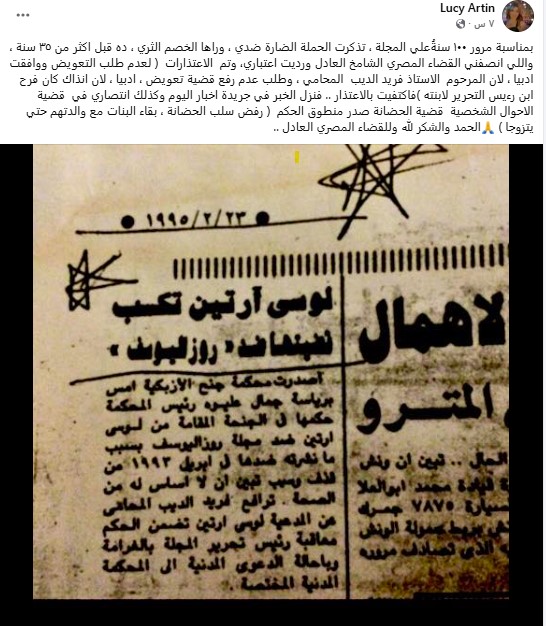 Lucy Artin
٧ س ·
بمناسبة مرور ١٠٠ سنةُعلي المجلة ، تذكرت الحملة الضارة ضدي ، وراها الخصم الثري ، ده قبل اكثر من ٣٥ سنة ،
واللي انصفني القضاء المصري الشامخ العادل ورديت اعتباري، وتم الاعتذارات ( لعدم طلب التعويض ووافقت
ادبيا ، لان المرحوم الاستاذ فريد الديب المحامي ، وطلب عدم رفع قضية تعويض ، ادبيا ، لان انذاك كان فرح
ابن رءيس التحرير لابنته )فاكتفيت بالاعتذار .. فنزل الخبر في جريدة اخبار اليوم وكذلك انتصاري في قضية
الاحوال الشخصية قضية الحضانة صدر منطوق الحكم ( رفض سلب الحضانة ، بقاء البنات مع والدتهم حتي
يتزوجا ) 🙏الحمد والشكر لله وللقضاء المصري العادل ..
١٩٩٥/٢/٢٣
لوسى آرتين تكسب
قضيتها ضد « روزاليوسف »
أصدرت محكمة جنح الأزبكية امس
برياسة جمال عليوه رئيس المحكمة
حكمها فى الجنحة المقامة من لوسى
ارتين ضد مجلة روزاليوسف بسبب
ما نشرته ضدها فى ابريل ١٩٩٣ من
قذف وسب تبين ان لا اساس له من
الصحة . ترافع فريد الديب المحامى
عن المدعية لوسى ارتين تضمن الحكم
معاقبة رئيس تحرير المجلة بالغرامة
وباحالة الدعوى المدنية الى المحكمة
المدنية المختصة .
لاهمال
المترو
الحال .. تبين ان ونش
قيادة محمد ابوالعلا
سيارة ٧٨٧٥ جمرك
حمولة الونش
الذى تصادف مروره